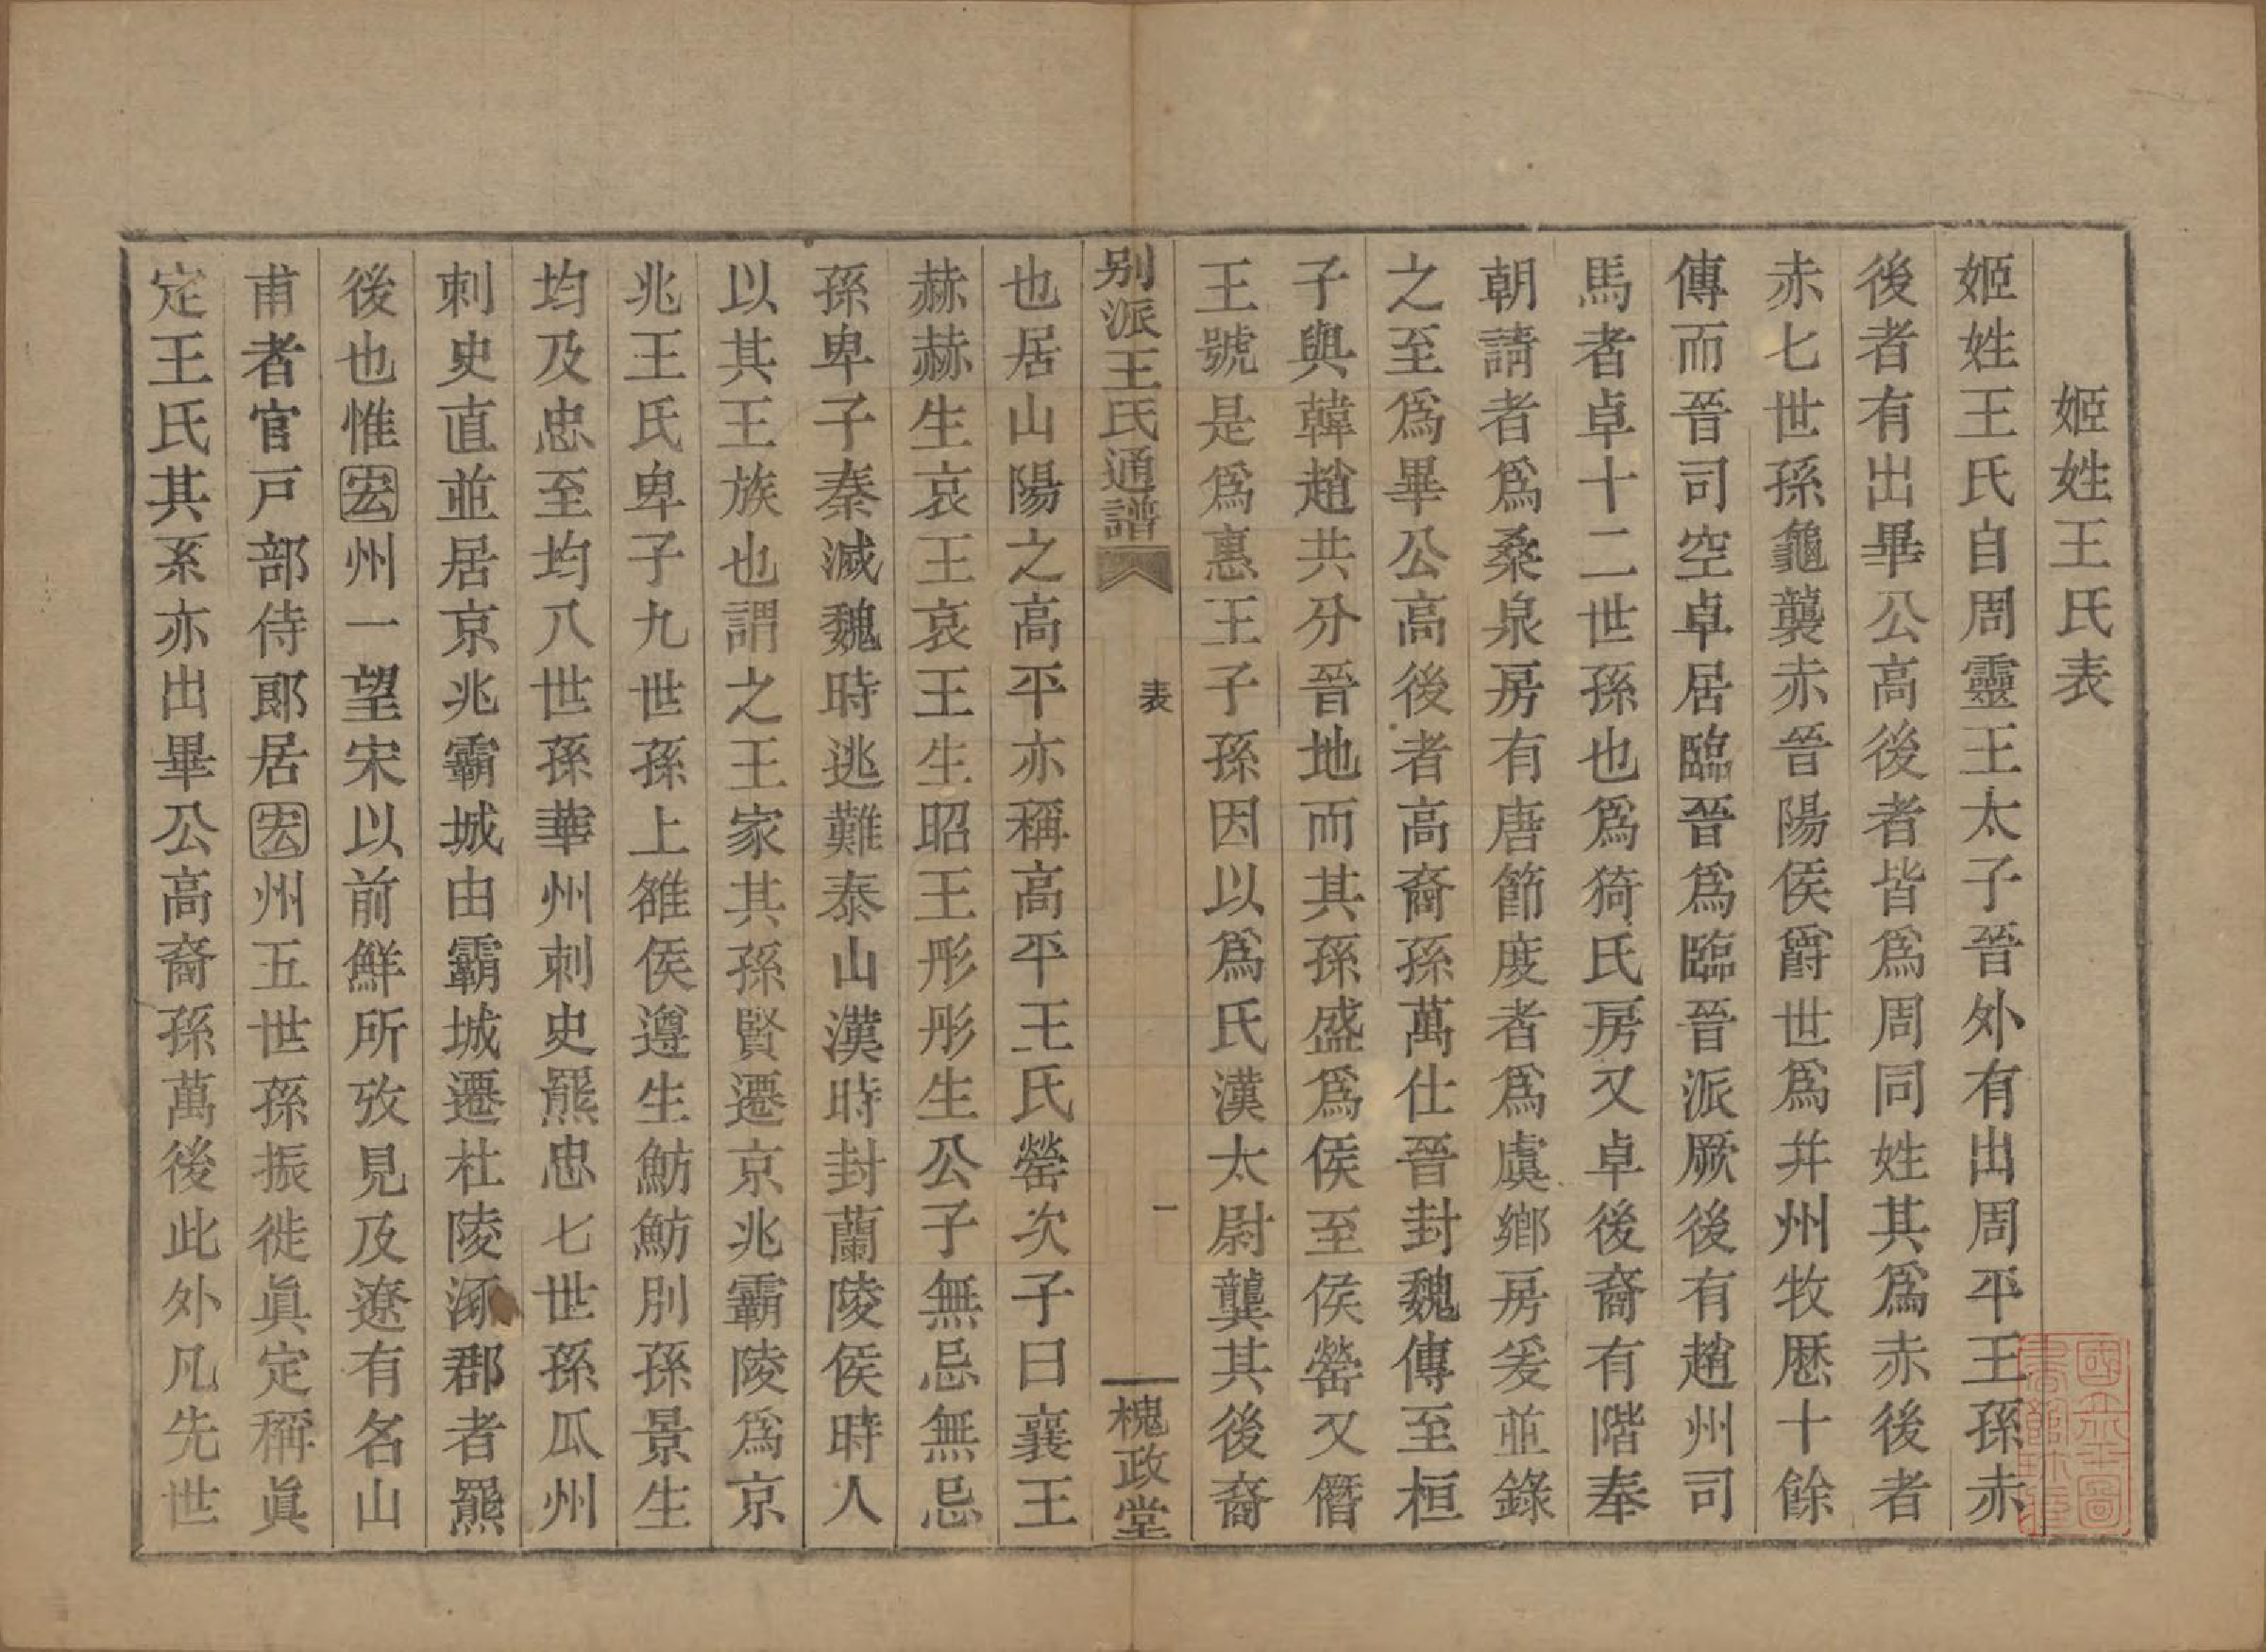 姬姓王氏表
姬姓王氏自周靈王太子晉外有出周平王孫赤
後者有出畢公高後者皆爲周同姓其爲赤後者
赤七世孫龜襲赤晉陽侯爵世爲幷州牧厯十餘
傳而晉司空卓居臨晉爲臨晉派厥後有趙州司
馬者卓十二世孫也爲猗氏房又卓後裔有階奉
朝請者爲桑泉房有唐節度者爲虞鄉房爰並錄
之至爲畢公高後者高裔孫萬仕晉封魏傳至桓
子與韓趙共分晉地而其孫盛爲侯至侯罃又僭
王號是爲惠王子孫因以爲氏漢太尉龔其後裔
别派王氏通譜
表
一
槐政堂
也居山陽之高平亦稱高平王氏罃次子曰襄王
赫赫生哀王哀王生昭王彤彤生公子無忌無忌
孫卑子秦滅魏時逃難泰山漢時封蘭陵侯時人
以其王族也謂之王家其孫賢遷京兆霸陵爲京
兆王氏卑子九世孫上雒侯遵生魴魴別孫景生
均及忠至均八世孫華州刺史羆忠七世孫瓜州
刺史直並居京兆霸城由霸城遷杜陵涿郡者羆
後也惟宏州一望宋以前鮮所攷見及遼有名山
甫者官戸部侍郎居宏州五世孫振徙眞定稱眞
定王氏其系亦出畢公高裔孫萬後此外凡先世
國立北平圖書館珍藏